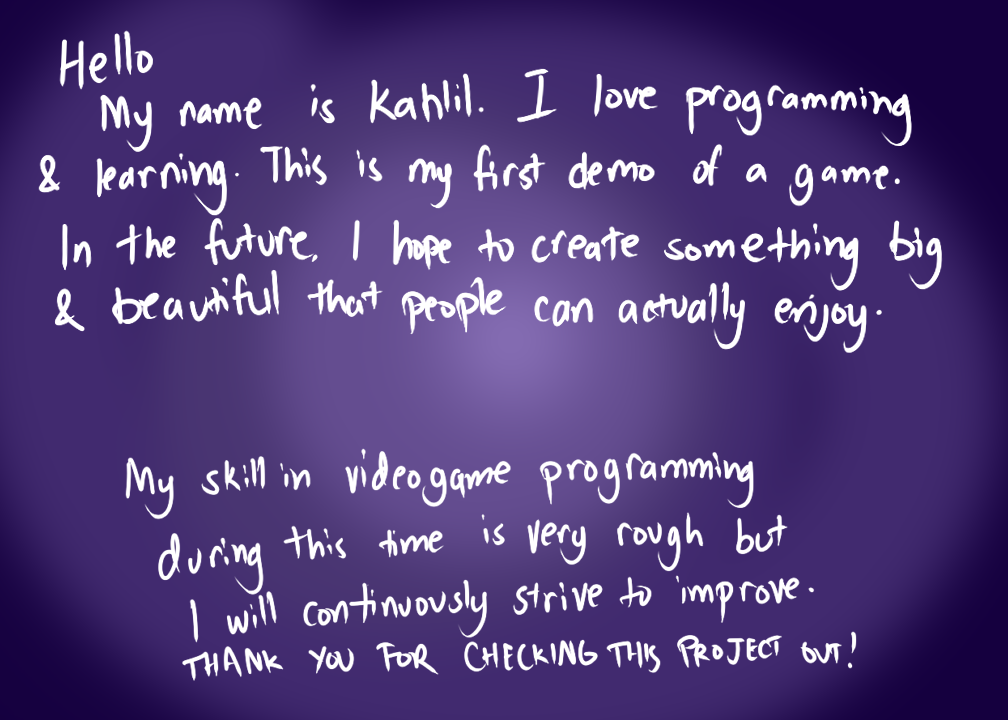 Hello
My name is Kahlil. I love programming
& learning. This is my first demo of a game.
In the future, I hope to create something big
& beautiful that people can actually enjoy.
My skill in videogame programming
during this time is very rough but
I will continuously strive to improve.
THANK YOU FOR CHECKING THIS PROJECT OUT!